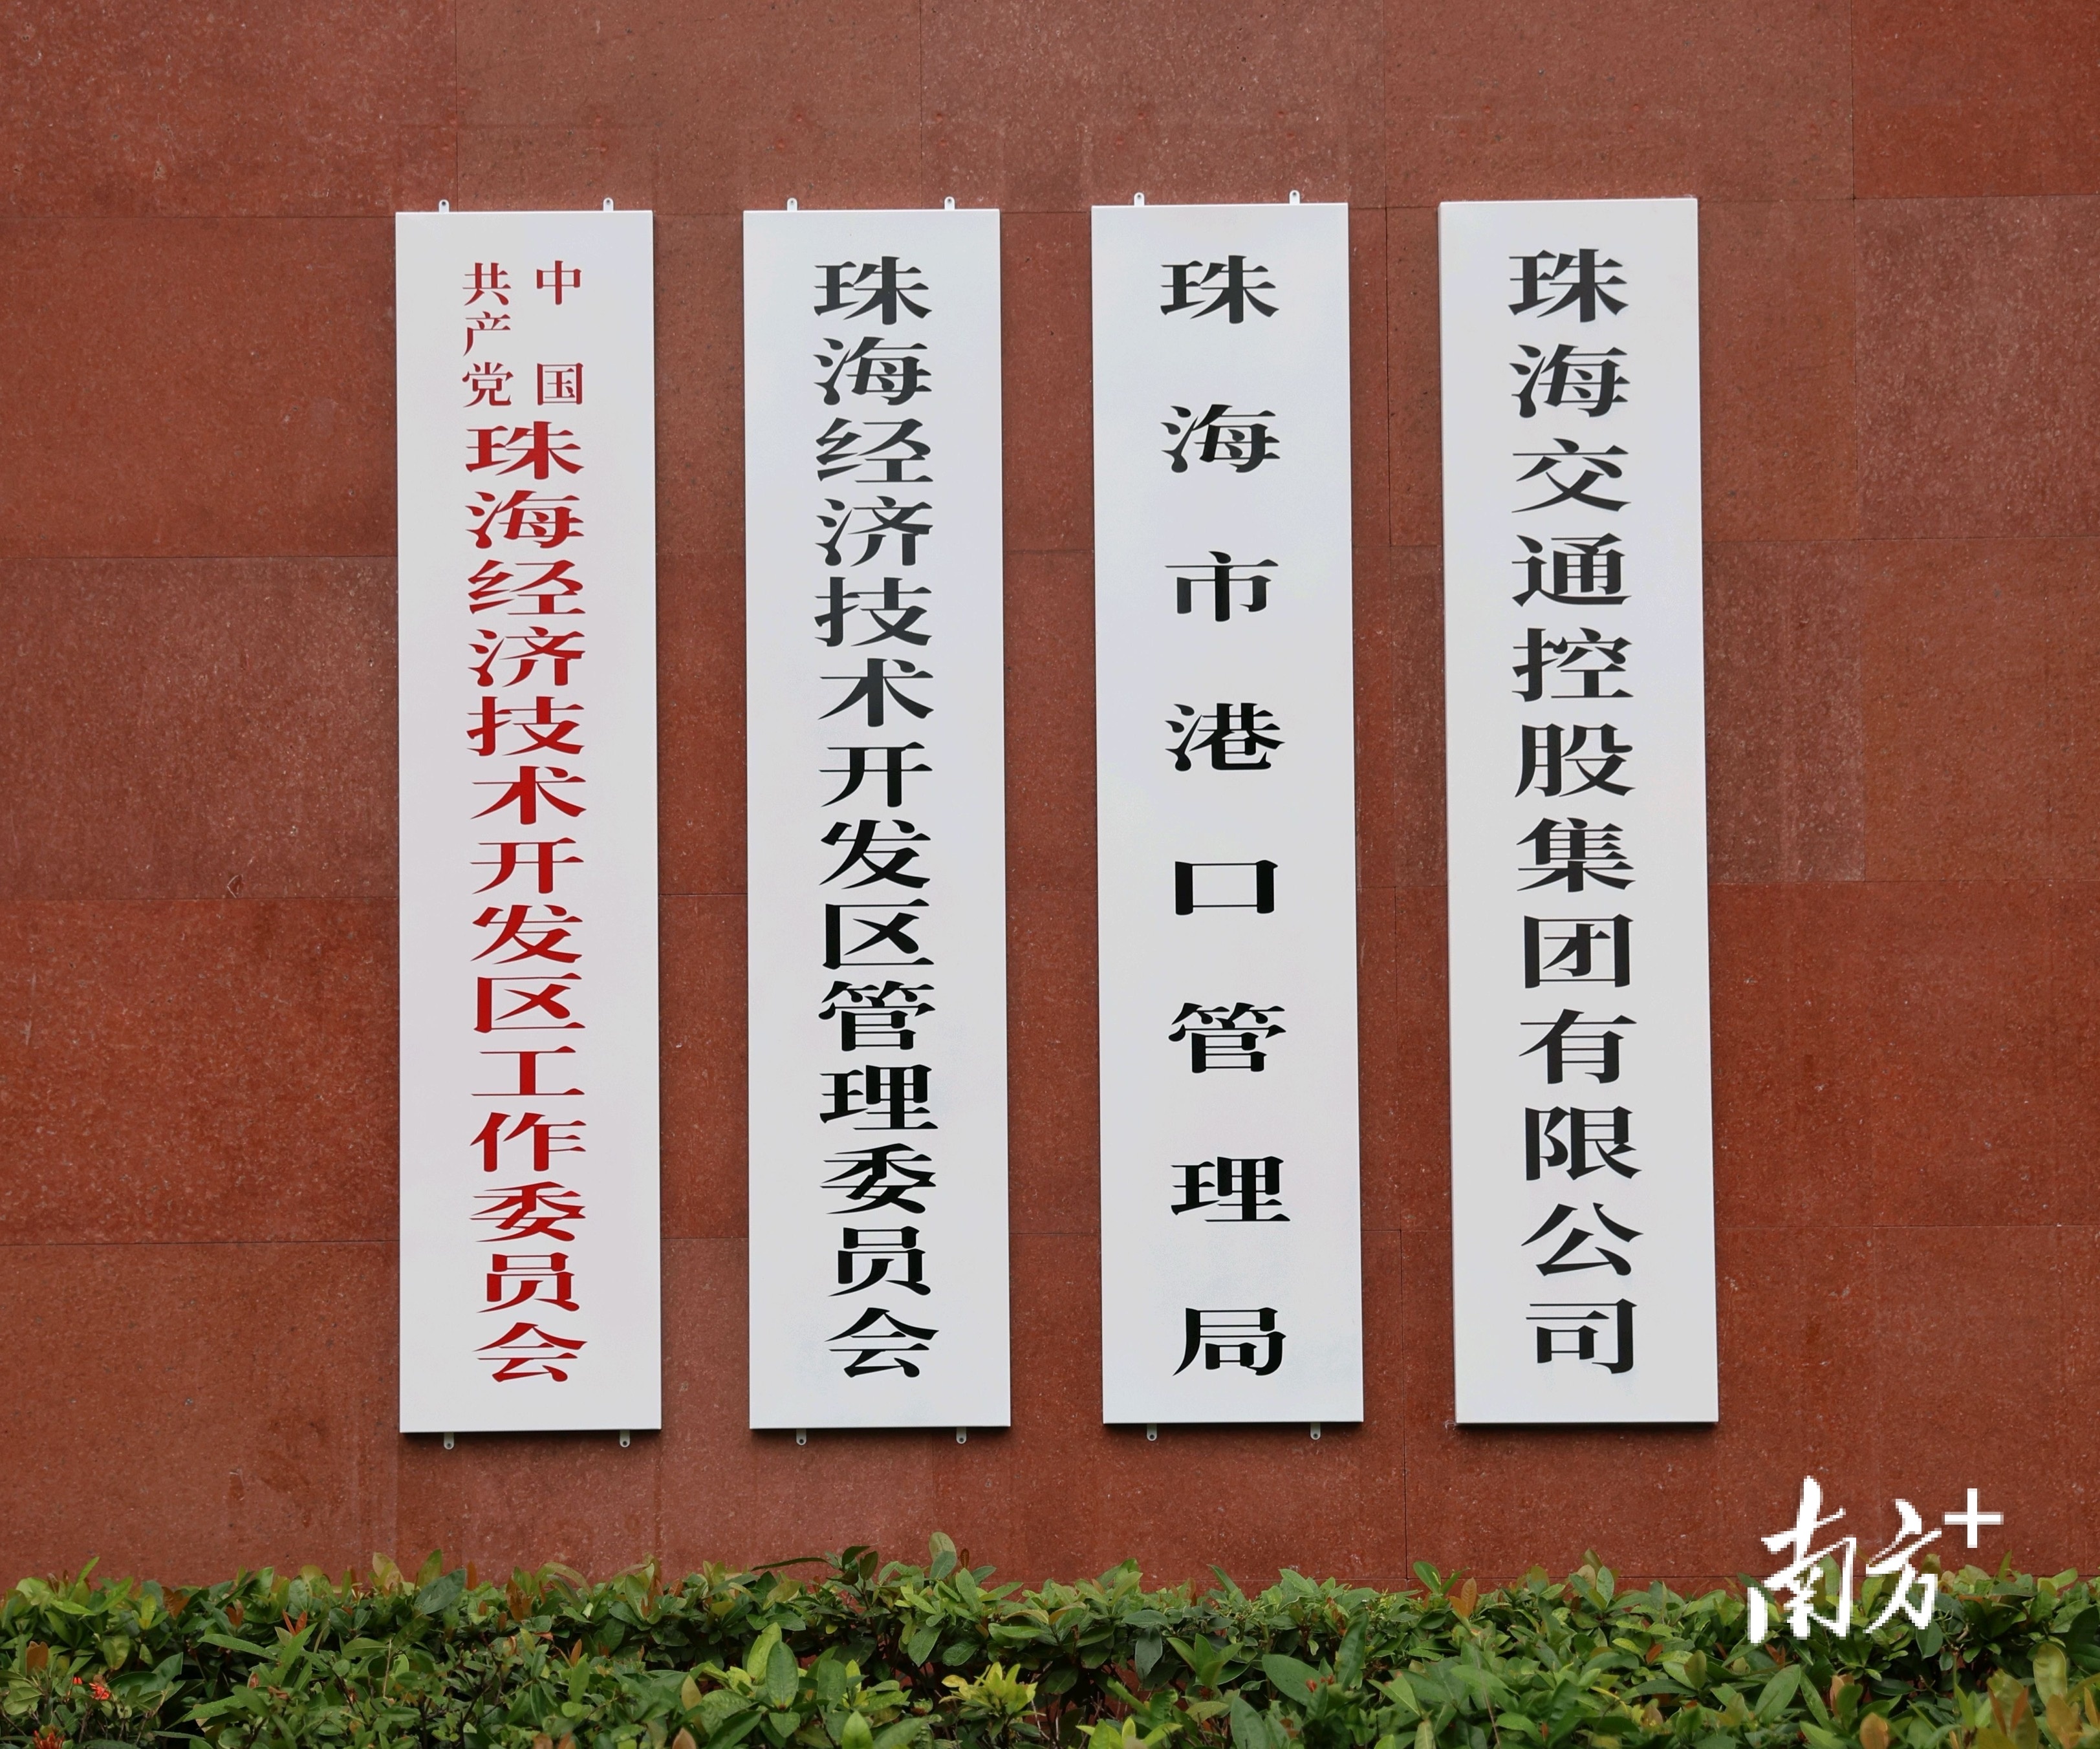 中国
共产党
珠海经济技术开发区工作委员会
珠海经济技术开发区管理委员会
珠海市港口管理局
珠海交通控股集团有限公司
南方+